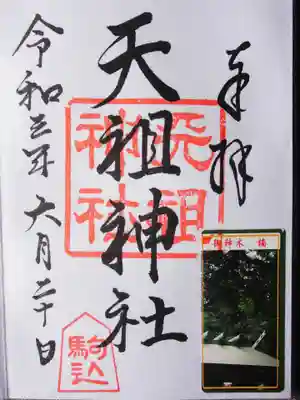 奉拝
天祖神社
天祖
神社
駒込
令和三年六月二十日
御神木